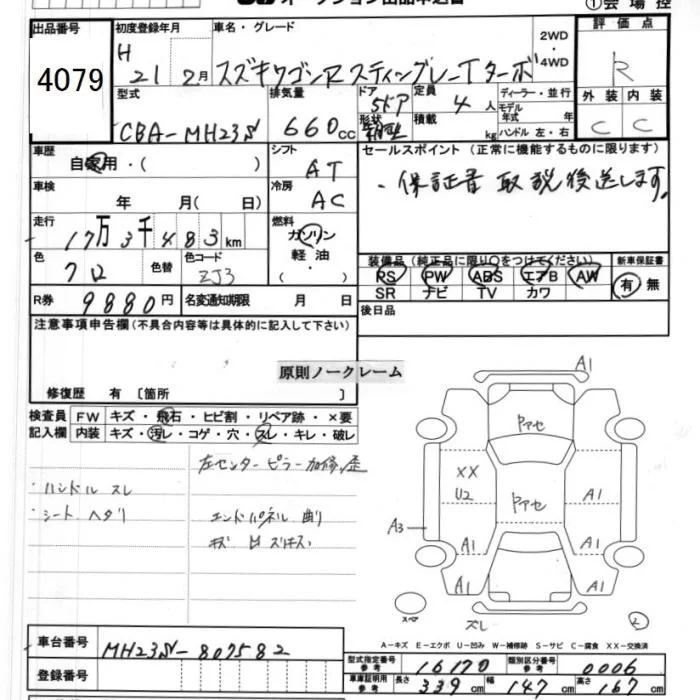 ① 会 場 控
出品番号
4079
初度登録年月
H 21 2月
車名・グレード
スズキワゴンR スティングレーTターボ
2WD
4WD
評 価 点
R
型式
CBA-MH23S
排気量
660cc
ドア 5ドア
形状
定員 4人
積載 kg
ディーラー・並行
モデル年式 年
ハンドル 左・右
外 装 内 装
C C
車歴
自家用・( )
シフト
AT
セールスポイント (正常に機能するものに限ります)
・保証書 取説後送します。
車検
年 月( 日)
冷房
AC
走行
17万3千483km
燃料
ガソリン
軽油・
( )
色
クロ
色替
色コード
ZJ3
装備品 (純正品に限り○をつけてください)
PS PW ABS エアB AW
SR ナビ TV カワ
新車保証書
有 無
R券
9880円
名変通知期限 月 日
後日品
注意事項申告欄 (不具合内容等は具体的に記入して下さい)
原則ノークレーム
修復歴 有 [箇所 ]
検査員 FW キズ・飛石・ヒビ割・リペア跡・×要
記入欄 内装 キズ・汚レ・コゲ・穴・スレ・キレ・破レ
左センターピラー加修、歪
・ハンドル スレ
・シート ヘタリ
エンドパネル 曲り
A1
Pアセ
XX
U2
Pアセ
A1
A3
A1
A1
A1
A1
スペア
ズレ
A-キズ E-エクボ U-凹み W-補修跡 S-サビ C-腐食 XX-交換済
車台番号
MH23S-807582
登録番号
型式指定番号 参考 16170
類別区分番号 参考 0006
車庫証明用 参考 長さ 339cm 幅 147cm 高さ 167cm